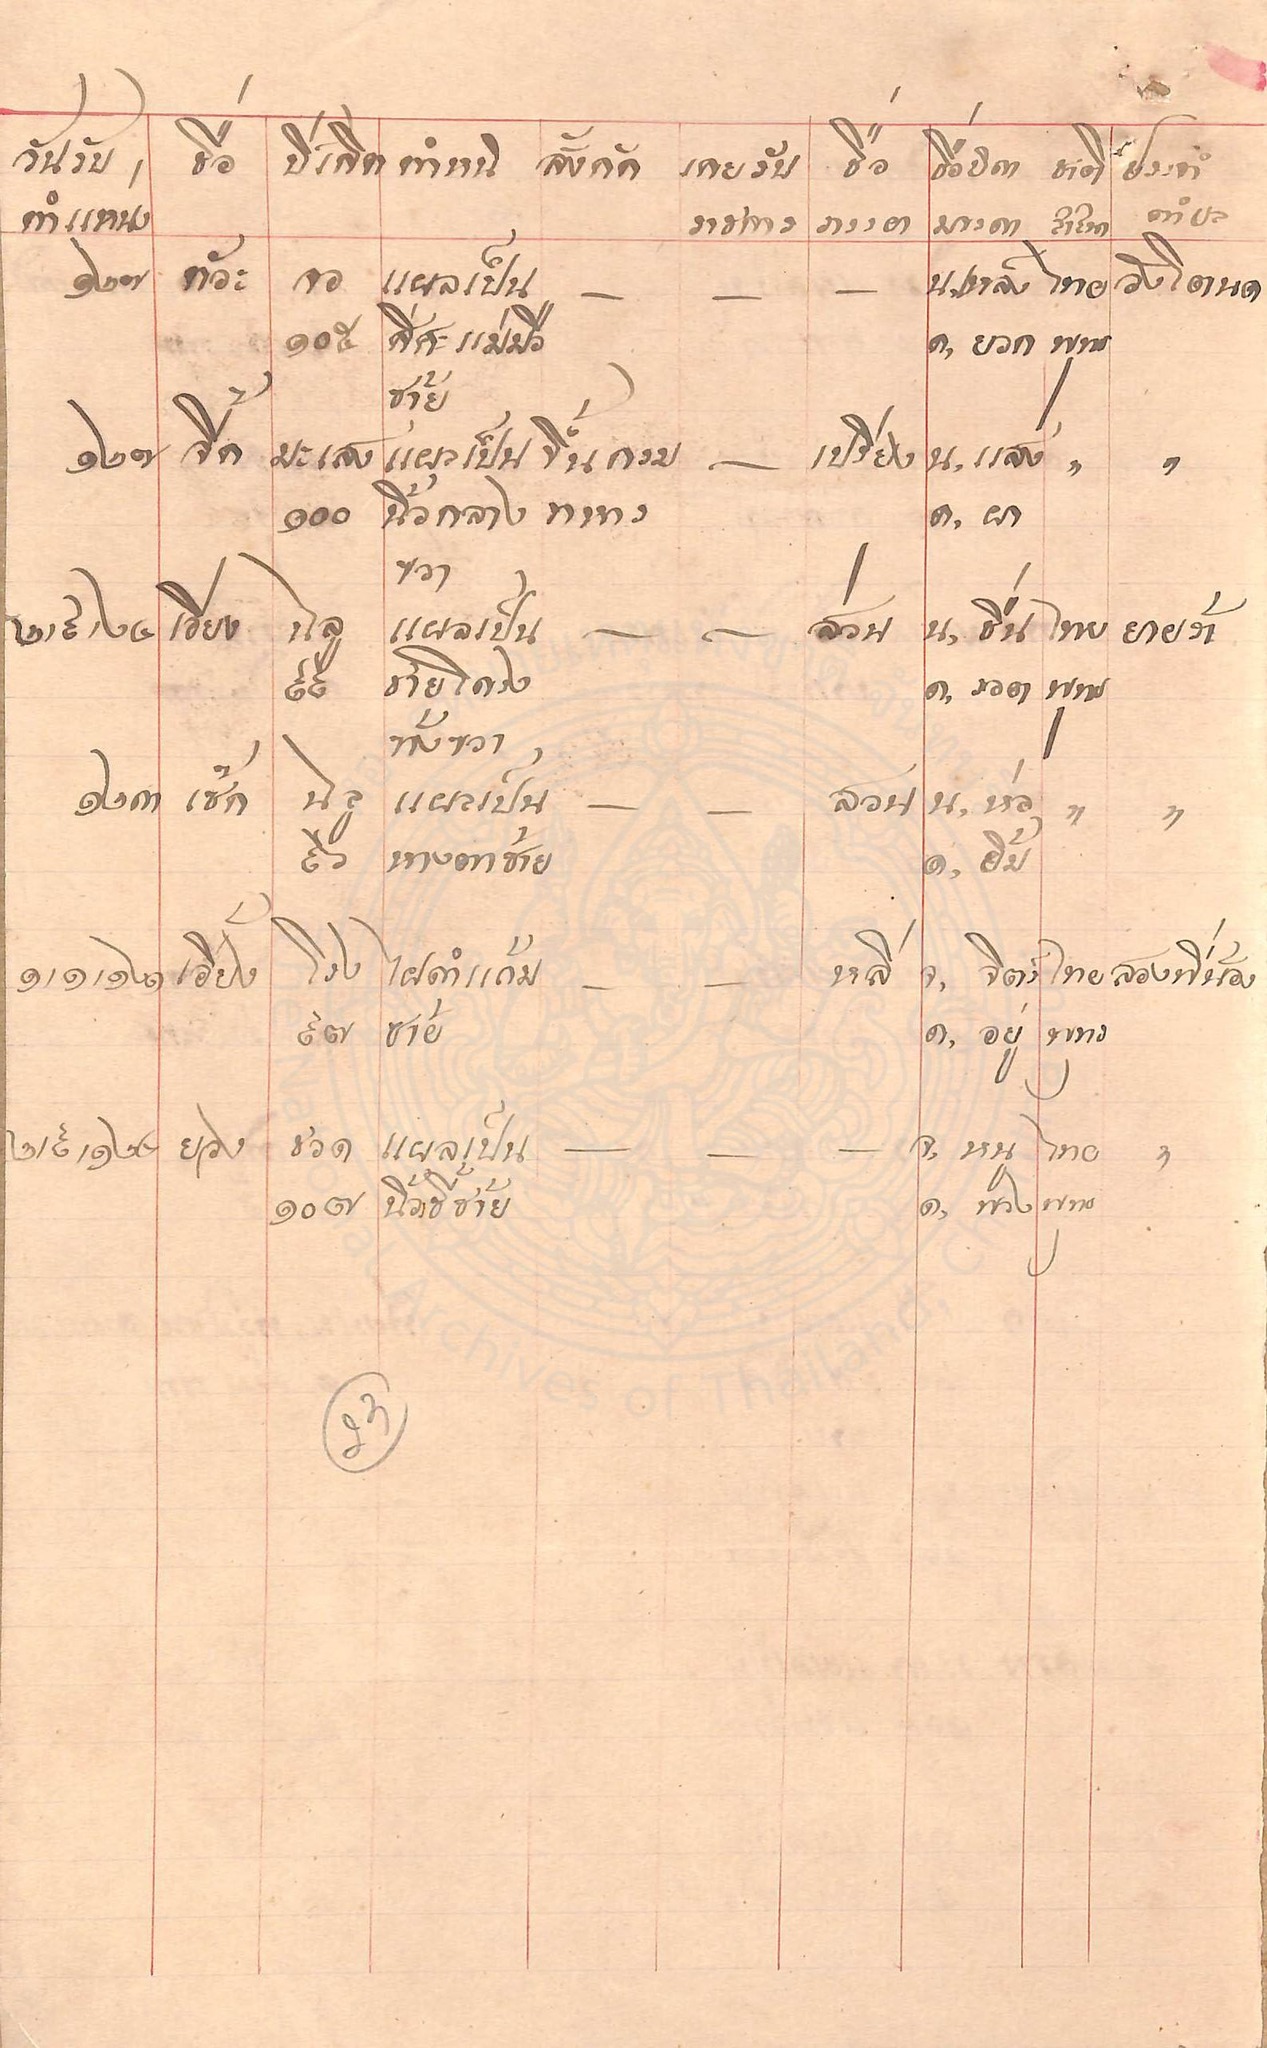 วันรับ ชื่อ ปีเกิด ตำหนิ สังกัด เคยรับ ชื่อ ชื่อบิดา ชาติ ประจำ
ตำแหน่ง ราชการ ภรรยา มารดา ตำบล
๑๒๗ จอ แผลเป็น — — — น, หลง ไทย วังโตนด
๑๐๕ แม่มือ ด, ยวก พุทธ
ซ้าย
๑๒๗ จี๊ก มะเสง แผลเป็น ขึ้นกรม — เปรี่ยง น, แสง " "
๑๐๐ นิ้วกลาง ทหาร ด, ผา
ขวา
เอี่ยง ฉลู แผลเป็น — — ส้วน น, ชื่น ไทย
๙๕ ชายโครง ด, รอด พุทธ
ข้างขวา
๑๒๓ เช๊ก ฉลู แผลเป็น — — สวน น, ห่อ " "
หางตาซ้าย ด, ยิ้ม
๑ ๑ ๑๒๑ เอี้ยง โรง ไฝดำแก้ม — — หลี จ, จิตร์ ไทย สองพี่น้อง
๙๗ ซ้าย ด, อยู่ พุทธ
ยวง ชวด แผลเป็น — — — จ, หนู ไทย "
๑๐๗ นิ้วชี้ซ้าย ด, พ่วง พุทธ
National Archives of Thailand